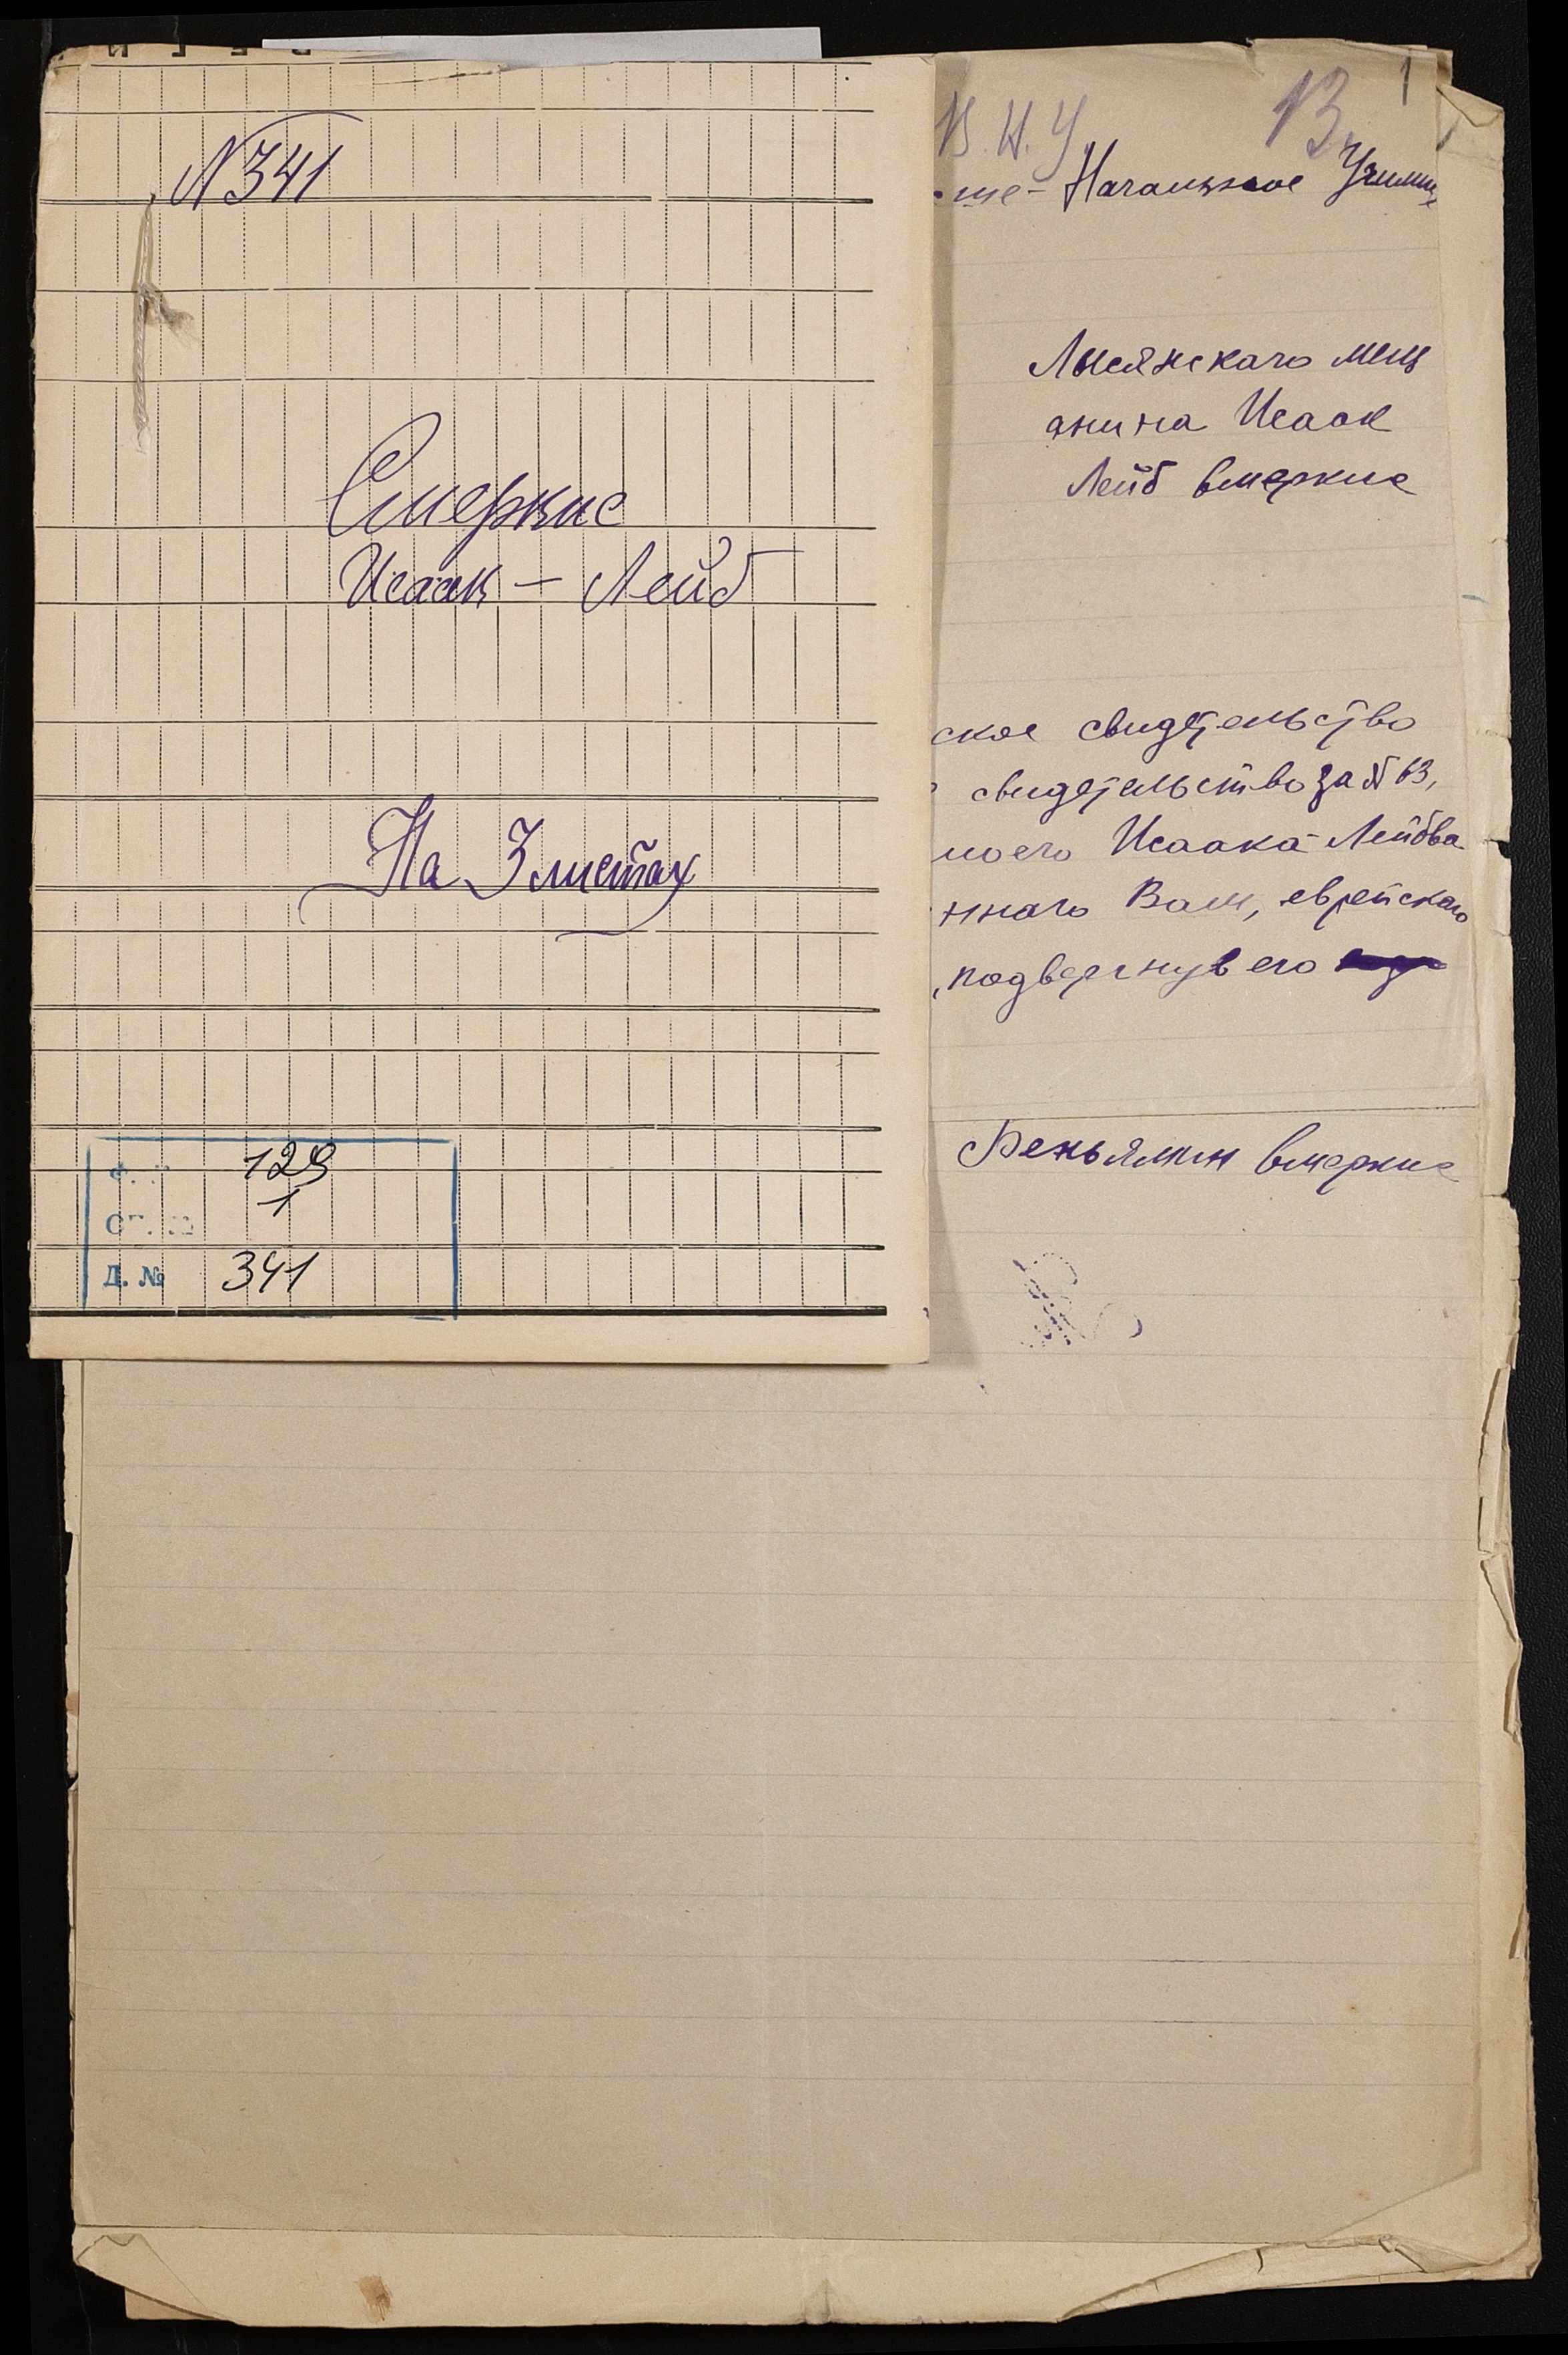 №341
Смеркис
Исаак — Лейб
На 3 листах
129
1
Д. № 341
1
13
В. Н. У.
ше-Начальное Училище
Лысянскаго мещ
анина Исаак
Лейб Смеркис
ское свидетельство
свидетельство за № 13,
моего Исаака-Лейбва
ннаго Вам, еврейскаго
, подвергнув его
Беньямин Смеркис